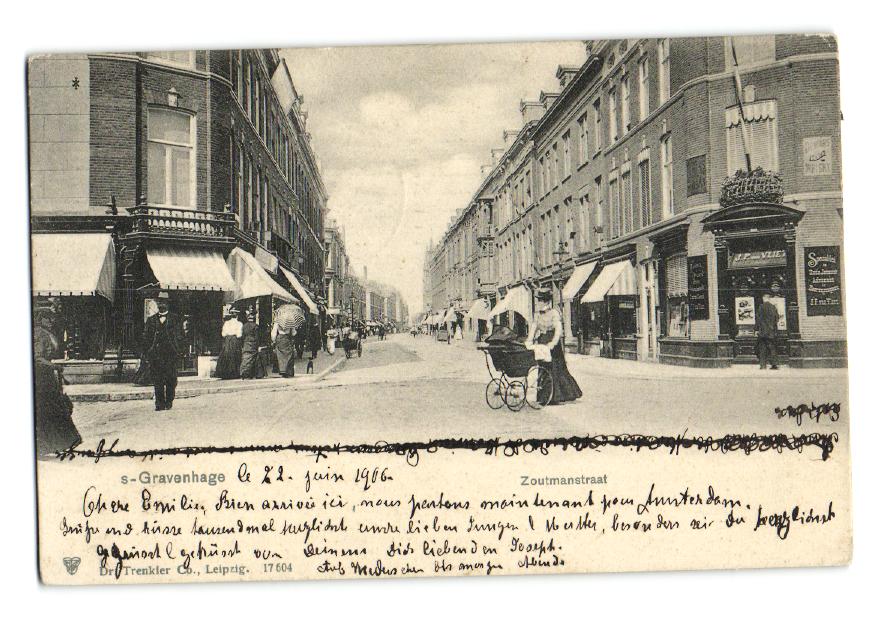 J. P. VAN VLIET
Specialiteit
s-Gravenhage le 22. juin 1906.
Zoutmanstraat
Chere Emilie, Bien arrivée ici, nous partons maintenant pour Amsterdam.
Grüße und küsse tausendmal herzlichst unsre lieben Jungen & Mutter, besonders sei du herzlichst
gegrüsst & geküsst von Deinem Dich liebenden Joseph.
Auf Wiedersehen bis morgen Abend.
Dr. Trenkler Co., Leipzig. 17604